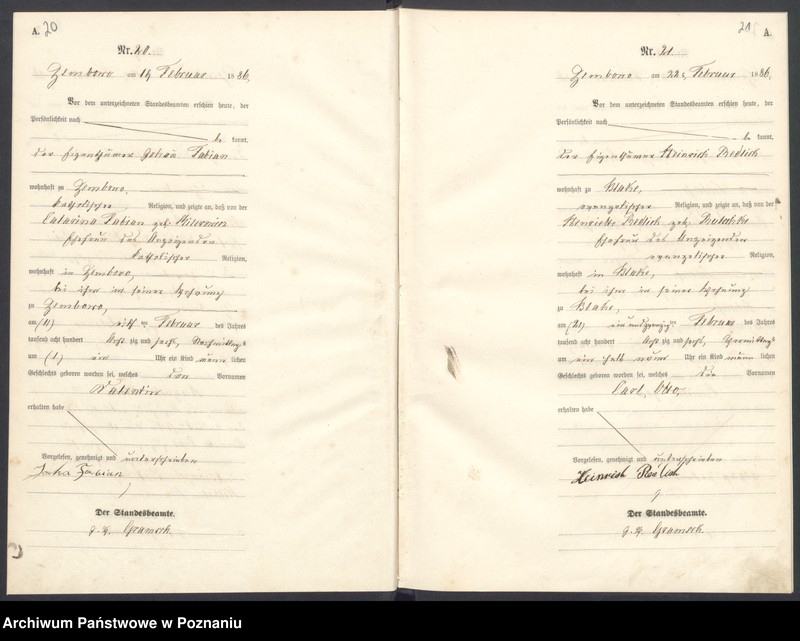 A. 20
Nr. 20.
am 14 Februar 1886,
Vor dem unterzeichneten Standesbeamten erschien heute, der
Persönlichkeit nach
be kannt,
der Eigenthümer Fabian
wohnhaft zu
katholischer Religion, und zeigte an, daß von der
Catarina Fabian geb.
Ehefrau des Anzeigenden
katholischer Religion,
wohnhaft in
bei ihm in seiner Wohnung
zu
am (11) elften Februar des Jahres
tausend acht hundert acht zig und sechs, Nachmittags
um (1) ein Uhr ein Kind männ lichen
Geschlechts geboren worden sei, welches den Vornamen
Valentin
erhalten habe
Vorgelesen, genehmigt und unterschrieben
Fabian
Der Standesbeamte.
21 A.
Nr. 21
am 22, Februar 1886,
Vor dem unterzeichneten Standesbeamten erschien heute, der
Persönlichkeit nach
be kannt,
der Eigenthümer Heinrich Redlich
wohnhaft zu Blake,
evangelischer Religion, und zeigte an, daß von der
Henriette Redlich geb.
Ehefrau des Anzeigenden
evangelischer Religion,
wohnhaft in Blake,
bei ihm in seiner Wohnung
zu Blake,
am (21) ein und zwanzigten Februar des Jahres
tausend acht hundert acht zig und sechs, Vormittags
um ein halb neun Uhr ein Kind männ lichen
Geschlechts geboren worden sei, welches die Vornamen
Carl, Otto,
erhalten habe
Vorgelesen, genehmigt und unterschrieben
Heinrich Redlich
Der Standesbeamte.
Archiwum Państwowe w Poznaniu